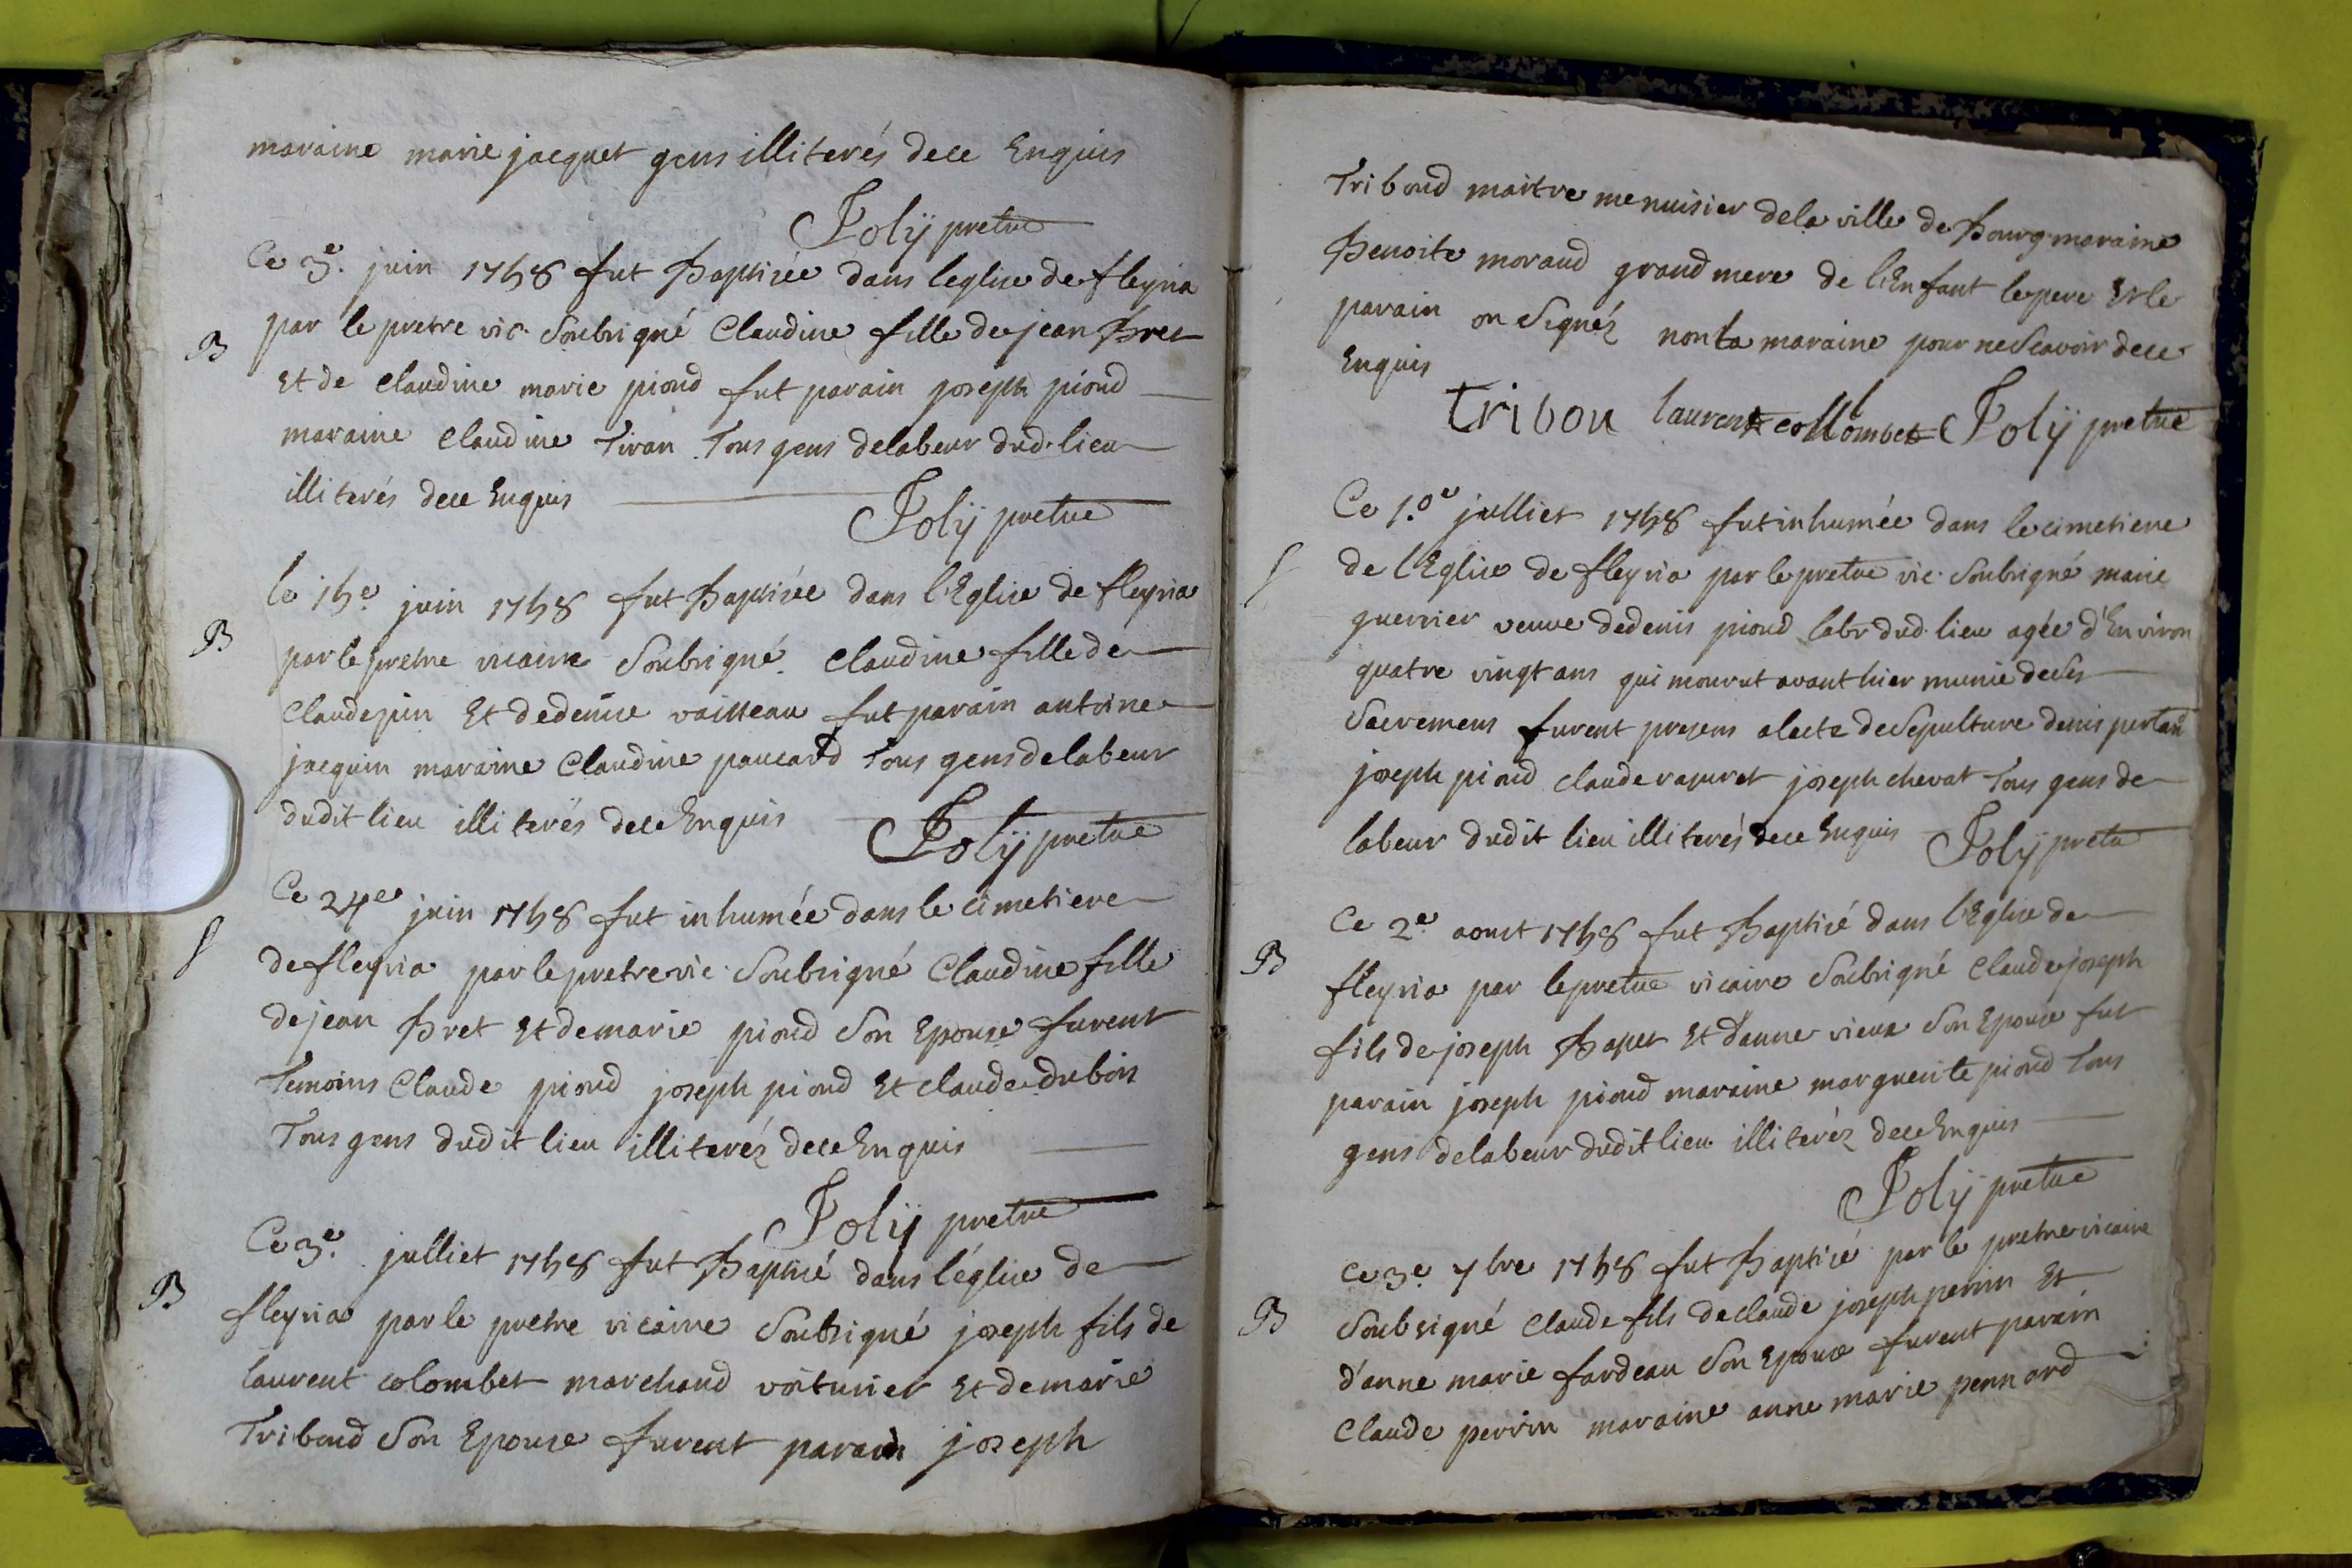 maraine marie jacquet gens illiterés dece Enquis
Joly pretre
Ce 3e. juin 1758 fut Baptisée dans leglise de fleyria
B
par le pretre vic. Soubsigné Claudine fille de jean Bret
Et de claudine marie pioud fut parain joseph pioud
maraine claudine Tiran Tous gens delabeur dud. lieu
illiterés dece Enquis
Joly pretre
le 15e. juin 1758 fut Baptisée dans l'Eglise de fleyria
B
par le pretre vicaire Soubsigné Claudine fille de
Claude juin Et dedenise vaisseau fut parain antoine
jacquin maraine Claudine paucard Tous gens delabeur
dudit lieu illiterés dece Enquis
Joly pretre
Ce 24e juin 1758 fut inhumée dans le cimetiere
S
de fleyria par le pretre vic. Soubsigné Claudine fille
de jean Bret Et demarie pioud Son Epouse furent
Temoins Claude pioud joseph pioud Et claude dubois
Tous gens dudit lieu illiteréz dece Enquis
Joly pretre
Ce 3e. julliet 1758 fut Baptisé dans l'église de
B
fleyria par le pretre vicaire Soubsigné joseph fils de
laurent colombet marchand voiturier Et demarie
Triboud Son Epouse furent parain joseph
Triboud maitre menuisier dela ville de Bourg maraine
Benoite moraud grand mere de l'Enfant le pere Et le
parain on Signéz non la maraine pour ne Scavoir dece
Enquis
tribou laurent collombet Joly pretre
Ce 10e julliet 1758 fut inhumée dans le cimetiere
S
de l'Eglise de fleyria par le pretre vic. Soubsigné marie
guerrier veuve dedenis pioud labr dud. lieu agée d'Environ
quatre vingt ans qui mourut avant hier munie de Ses
Sacremens furent presens a lacte de Sepulture denis pertan
joseph pioud claude ravuret joseph chevat Tous gens de
labeur dudit lieu illiterés dece Enquis
Joly pretre
Ce 2e. aoust 1758 fut Baptisé dans l'Eglise de
B
fleyria par le pretre vicaire Soubsigné Claude joseph
fils de joseph Bapet Et d'anne vieux Son Epouse fut
parain joseph pioud maraine marguerite pioud Tous
gens delabeur dudit lieu illiteréz dece Enquis
Joly pretre
Ce 3e. 7bre 1758 fut Baptisé par le pretre vicaire
B
Soubsigné Claude fils de claude joseph perrin Et
d'anne marie fardeau Son Epouse furent parain
Claude perrin maraine anne marie pennard